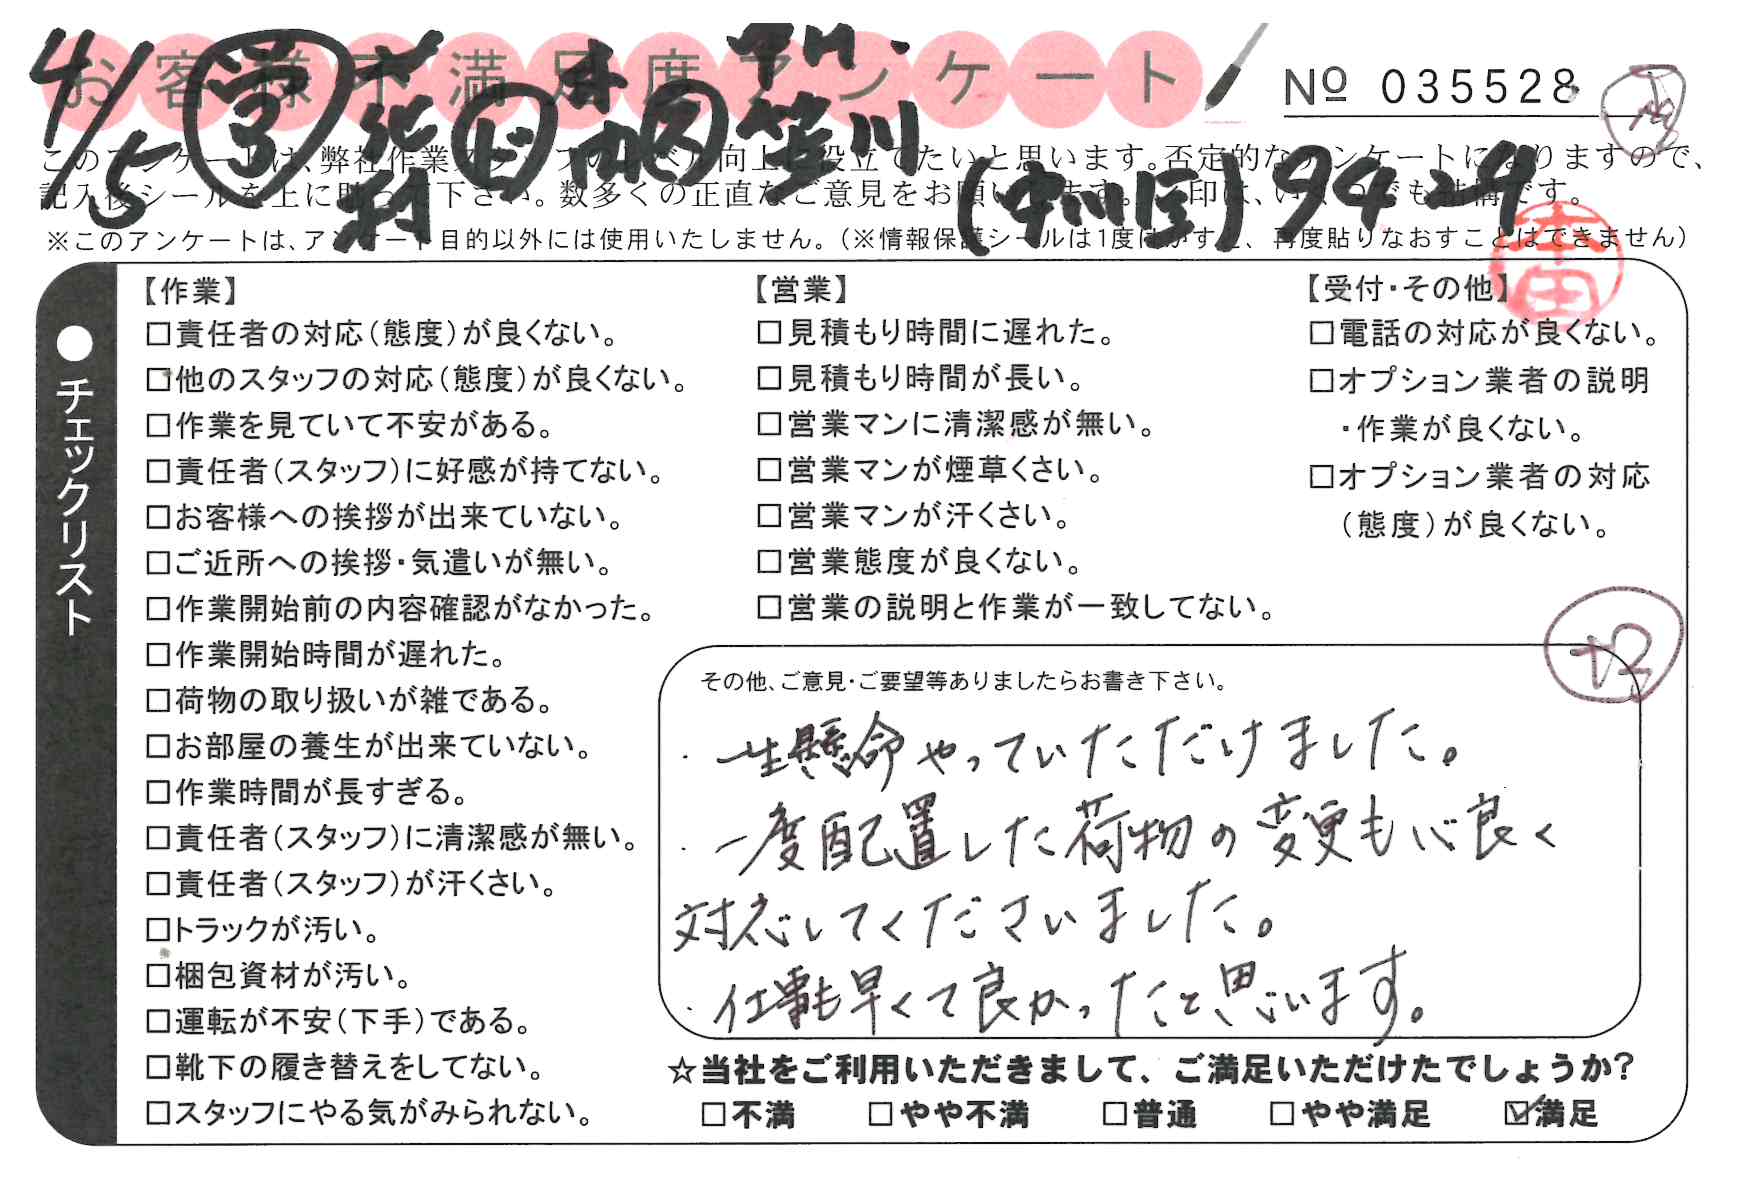 お客様不満足度アンケート
№ 035528
4/5
笹川
(中川店) 94-24
このアンケートは、弊社作業スタッフのレベル向上に役立てたいと思います。否定的なアンケートになりますので、
記入後シールを上に貼って下さい。数多くの正直なご意見をお願いします。
※このアンケートは、アンケート目的以外には使用いたしません。(※情報保護シールは1度はがすと、再度貼りなおすことはできません)
本田
●チェックリスト
【作業】
□責任者の対応(態度)が良くない。
□他のスタッフの対応(態度)が良くない。
□作業を見ていて不安がある。
□責任者(スタッフ)に好感が持てない。
□お客様への挨拶が出来ていない。
□ご近所への挨拶・気遣いが無い。
□作業開始前の内容確認がなかった。
□作業開始時間が遅れた。
□荷物の取り扱いが雑である。
□お部屋の養生が出来ていない。
□作業時間が長すぎる。
□責任者(スタッフ)に清潔感が無い。
□責任者(スタッフ)が汗くさい。
□トラックが汚い。
□梱包資材が汚い。
□運転が不安(下手)である。
□靴下の履き替えをしてない。
□スタッフにやる気がみられない。
【営業】
□見積もり時間に遅れた。
□見積もり時間が長い。
□営業マンに清潔感が無い。
□営業マンが煙草くさい。
□営業マンが汗くさい。
□営業態度が良くない。
□営業の説明と作業が一致してない。
【受付・その他】
□電話の対応が良くない。
□オプション業者の説明
・作業が良くない。
□オプション業者の対応
(態度)が良くない。
その他、ご意見・ご要望等ありましたらお書き下さい。
・一生懸命やっていただけました。
・一度配置した荷物の変更も心良く
対応してくださいました。
・仕事も早くて良かったと思います。
☆当社をご利用いただきまして、ご満足いただけたでしょうか?
□不満 □やや不満 □普通 □やや満足 ☑満足